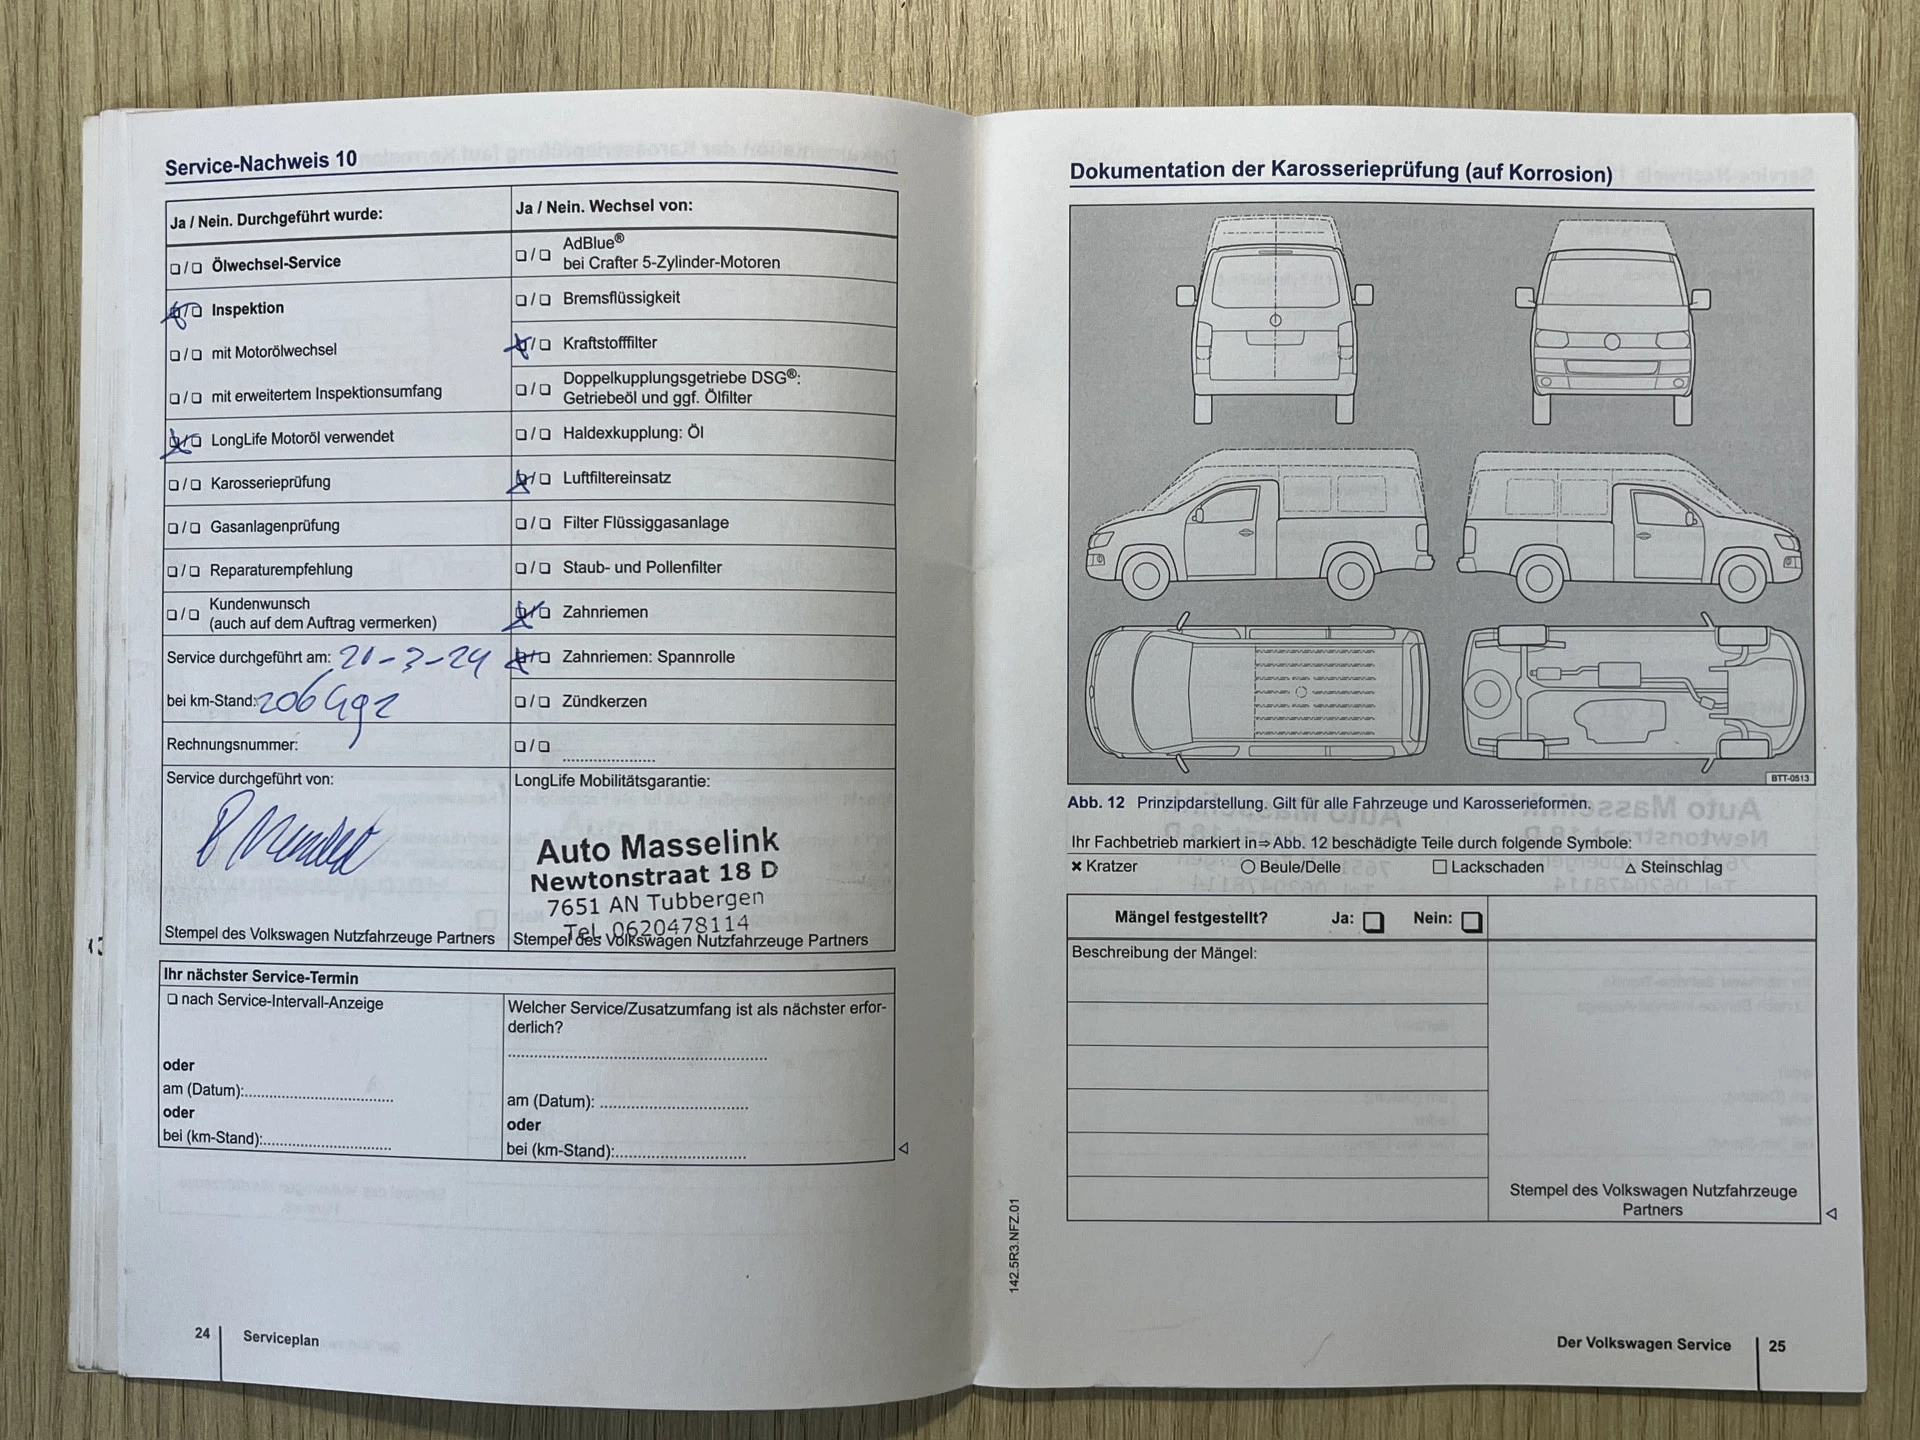 Service-Nachweis 10
Ja / Nein. Durchgeführt wurde:
❏ / ❏ Ölwechsel-Service
❏ / ❏ Inspektion
❏ / ❏ mit Motorölwechsel
❏ / ❏ mit erweitertem Inspektionsumfang
❏ / ❏ LongLife Motoröl verwendet
❏ / ❏ Karosserieprüfung
❏ / ❏ Gasanlagenprüfung
❏ / ❏ Reparaturempfehlung
❏ / ❏ Kundenwunsch
(auch auf dem Auftrag vermerken)
Service durchgeführt am: 21-3-24
bei km-Stand:
Rechnungsnummer:
Service durchgeführt von:
Stempel des Volkswagen Nutzfahrzeuge Partners
Ja / Nein. Wechsel von:
❏ / ❏ AdBlue®
bei Crafter 5-Zylinder-Motoren
❏ / ❏ Bremsflüssigkeit
❏ / ❏ Kraftstofffilter
❏ / ❏ Doppelkupplungsgetriebe DSG®:
Getriebeöl und ggf. Ölfilter
❏ / ❏ Haldexkupplung: Öl
❏ / ❏ Luftfiltereinsatz
❏ / ❏ Filter Flüssiggasanlage
❏ / ❏ Staub- und Pollenfilter
❏ / ❏ Zahnriemen
❏ / ❏ Zahnriemen: Spannrolle
❏ / ❏ Zündkerzen
❏ / ❏ ......................
LongLife Mobilitätsgarantie:
Auto Masselink
Newtonstraat 18 D
7651 AN Tubbergen
Tel. 0620478114
Stempel des Volkswagen Nutzfahrzeuge Partners
Ihr nächster Service-Termin
❏ nach Service-Intervall-Anzeige
oder
am (Datum):....................................
oder
bei (km-Stand):...............................
Welcher Service/Zusatzumfang ist als nächster erfor-
derlich?
..............................................................
am (Datum): ....................................
oder
bei (km-Stand):...............................
24 Serviceplan
Dokumentation der Karosserieprüfung (auf Korrosion)
BTT-0513
Abb. 12 Prinzipdarstellung. Gilt für alle Fahrzeuge und Karosserieformen.
Ihr Fachbetrieb markiert in⇒ Abb. 12 beschädigte Teile durch folgende Symbole:
✖ Kratzer ◯ Beule/Delle □ Lackschaden △ Steinschlag
Mängel festgestellt? Ja: ❏ Nein: ❏
Beschreibung der Mängel:
Stempel des Volkswagen Nutzfahrzeuge
Partners
142.5R3.NFZ.01
Der Volkswagen Service 25